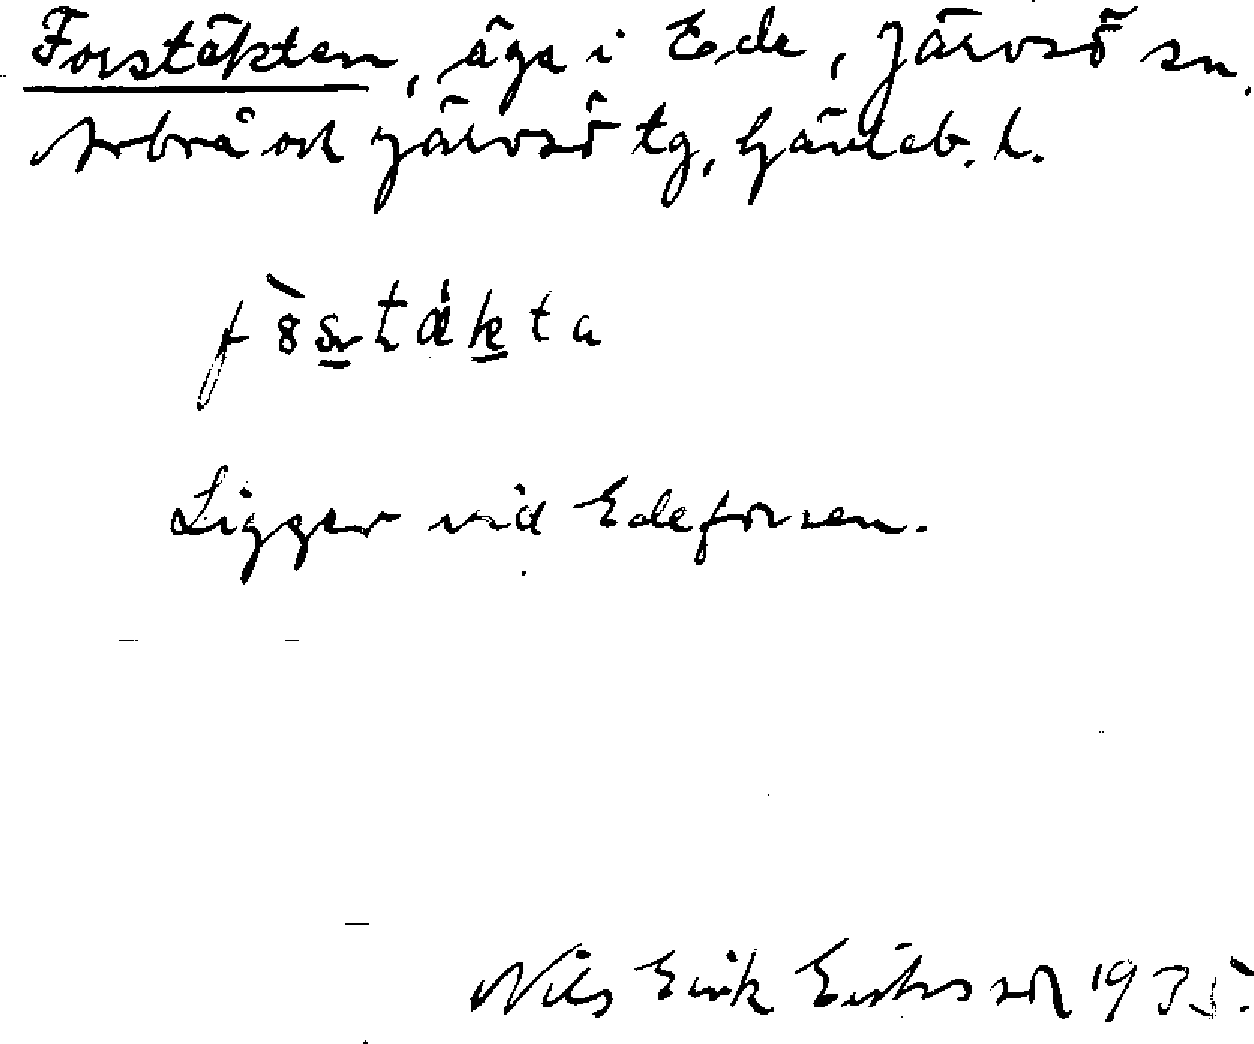 Forstäkten, äga i Ede, Järvsö sn.
Arbrå och Järvsö tg, Gävleb. l.
Ligger vid Edeforsen.
Nils Erik Eriksson 1935.